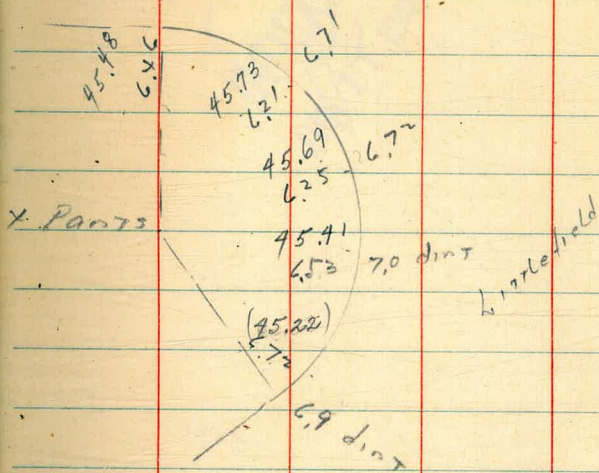 45.48
6.46
45.73
6.21
6.71
45.69
6.25
6.72
x Pants
45.41
6.53
7.0 dirt
Littlefield
(45.22)
6.72
6.9 dirt